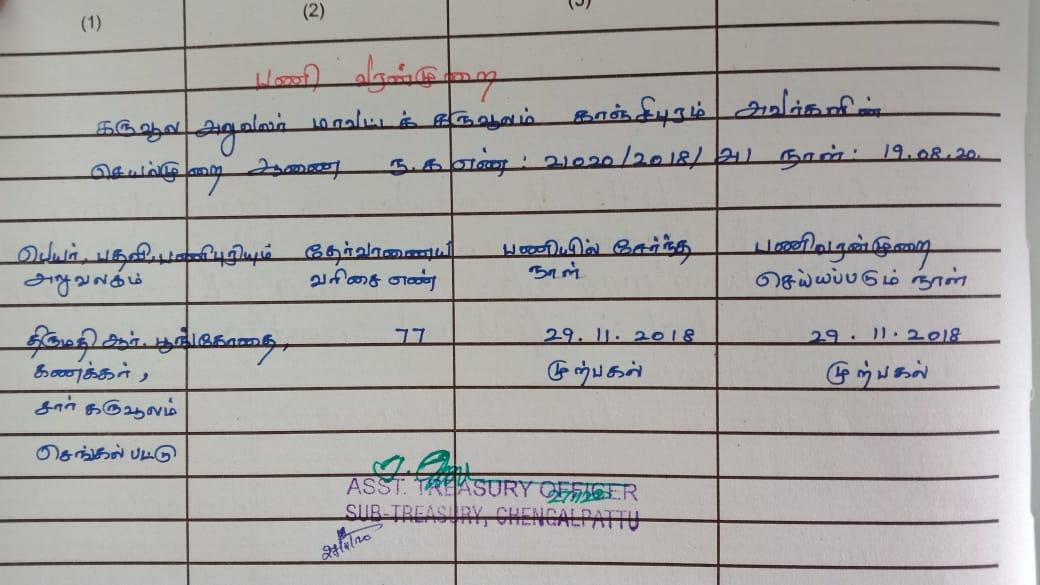 (1) (2) (3)
பணி வரன்முறை
கருவூல அலுவலர் மாவட்டக் கருவூலம் காஞ்சிபுரம் அவர்களின்
செயல்முறை ஆணை ந.க எண்: 21020/2018/அ1 நாள்: 19.08.20.
பெயர், பதவி, பணிபுரியும் தேர்வாணைய பணியில் சேர்ந்த பணிவரன்முறை
அலுவலகம் வரிசை எண் நாள் செய்யப்படும் நாள்
திருமதி ஆர். பூங்கோதை, 77 29.11.2018 29.11.2018
கணக்கர், முற்பகல் முற்பகல்
சார் கருவூலம்
செங்கல்பட்டு
ASST. TREASURY OFFICER
SUB-TREASURY, CHENGALPATTU